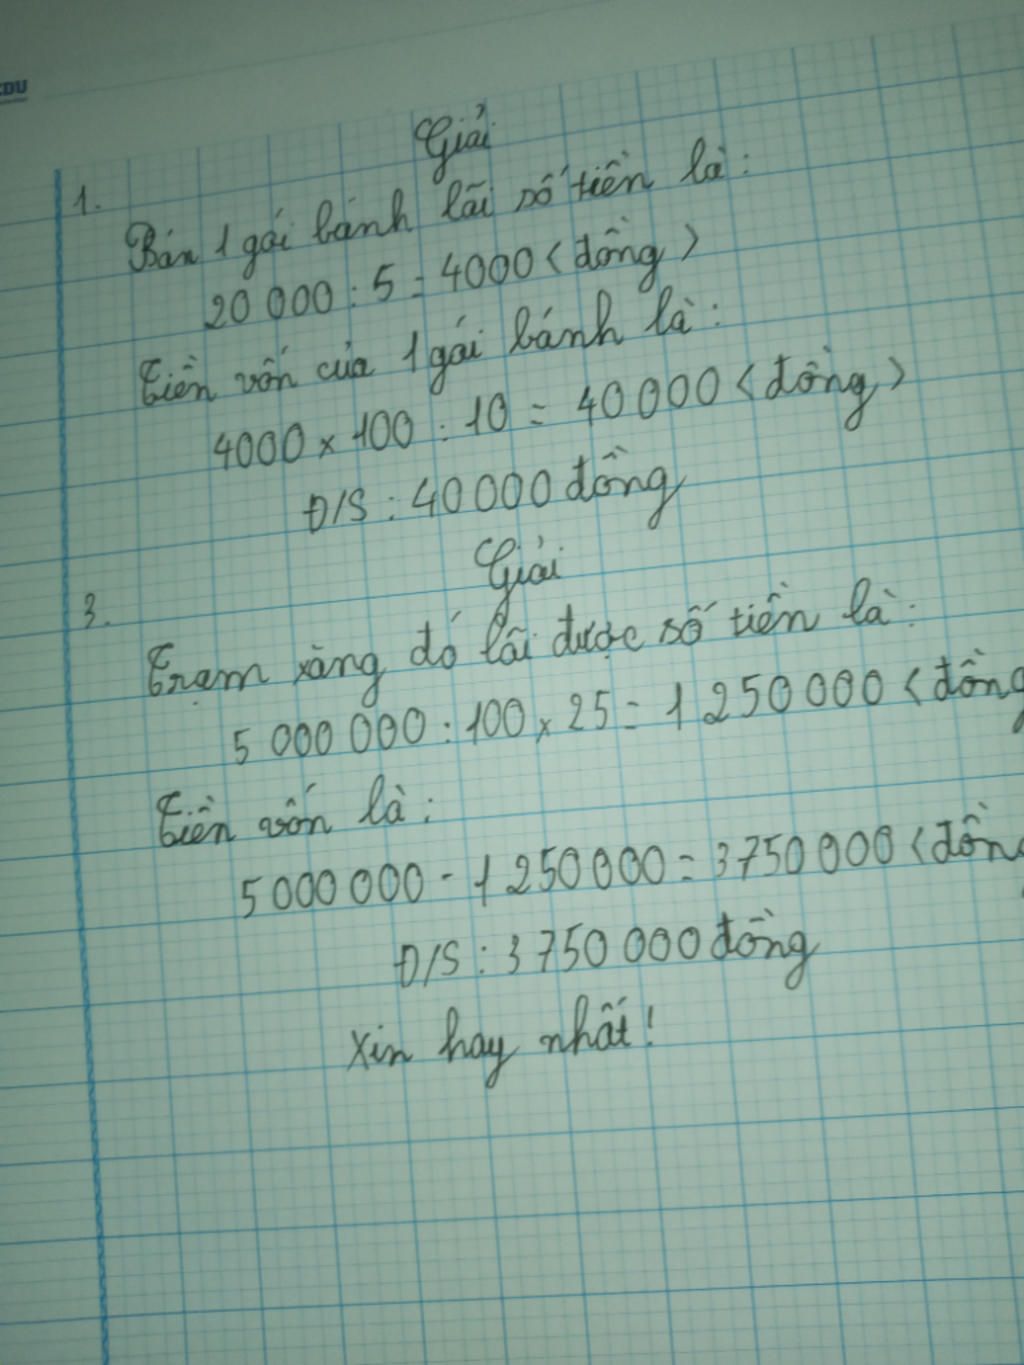 EDU
Giải
1.
Bán 1 gói bánh lãi số tiền là:
20 000 : 5 = 4000 < đồng >
Tiền vốn của 1 gói bánh là:
4000 x 100 : 10 = 40 000 < đồng >
Đ/S : 40 000 đồng
Giải
3.
Trạm xăng đó lãi được số tiền là:
5 000 000 : 100 x 25 = 1 250 000 < đồng
Tiền vốn là:
5 000 000 - 1 250 000 = 3 750 000 < đồng
Đ/S : 3 750 000 đồng
Xin hay nhất!